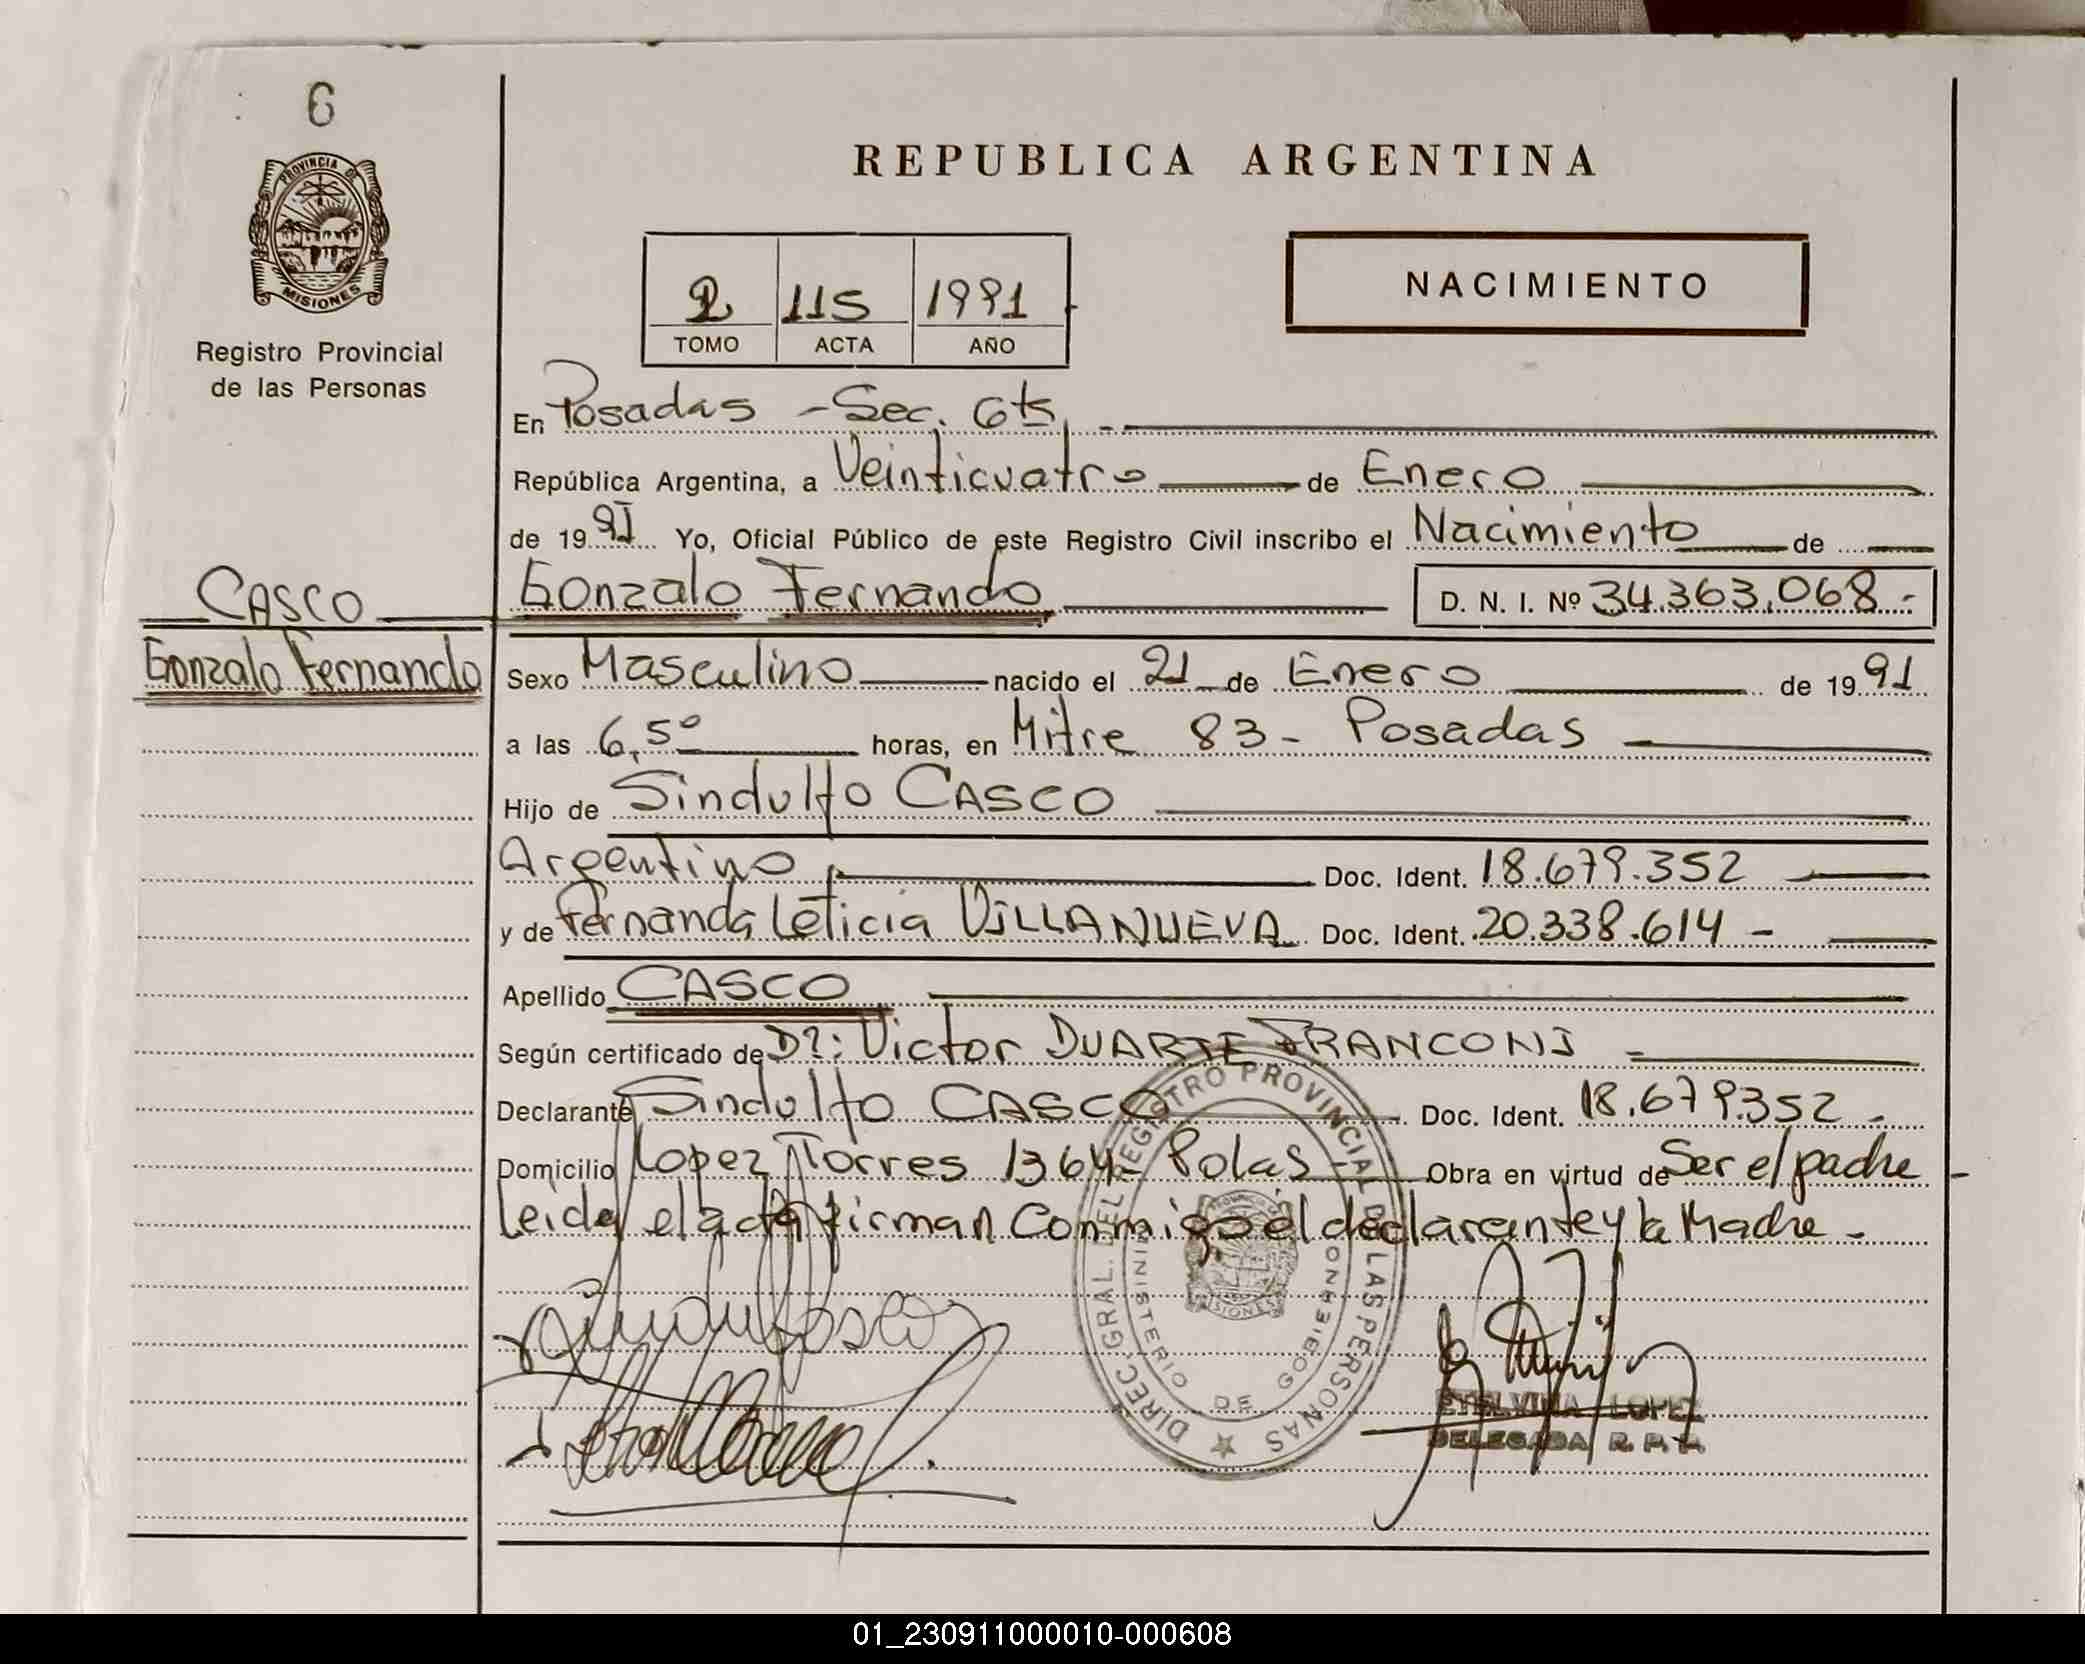 6
PROVINCIA DE
MISIONES
Registro Provincial
de las Personas
REPUBLICA ARGENTINA
2 115 1991
TOMO ACTA AÑO
NACIMIENTO
En Posadas - Sec. 6ta
República Argentina, a Veinticuatro de Enero
de 1991 Yo, Oficial Público de este Registro Civil inscribo el Nacimiento de
CASCO
Gonzalo Fernando
Gonzalo Fernando D. N. I. Nº 34.363.068.-
Sexo Masculino nacido el 21 de Enero de 1991
a las 6,5º horas, en Mitre 83 - Posadas
Hijo de Sindulfo CASCO
Argentino Doc. Ident. 18.679.352
y de Fernanda Leticia VILLANUEVA Doc. Ident. 20.338.614 -
Apellido CASCO
Según certificado de Dr: Victor DUARTE FRANCONI
Declarante Sindulfo CASCO Doc. Ident. 18.679.352 -
Domicilio Lopez Torres 1364 - Pdas - Obra en virtud de Ser el padre -
leida el acta firman Conmigo el declarante y la Madre -
DIREC. GRAL. DEL REGISTRO PROVINCIAL DE LAS PERSONAS
MINISTERIO DE GOBIERNO
MISIONES
ETELVINA LOPEZ
DELEGADA R. P. P.
01_230911000010-000608